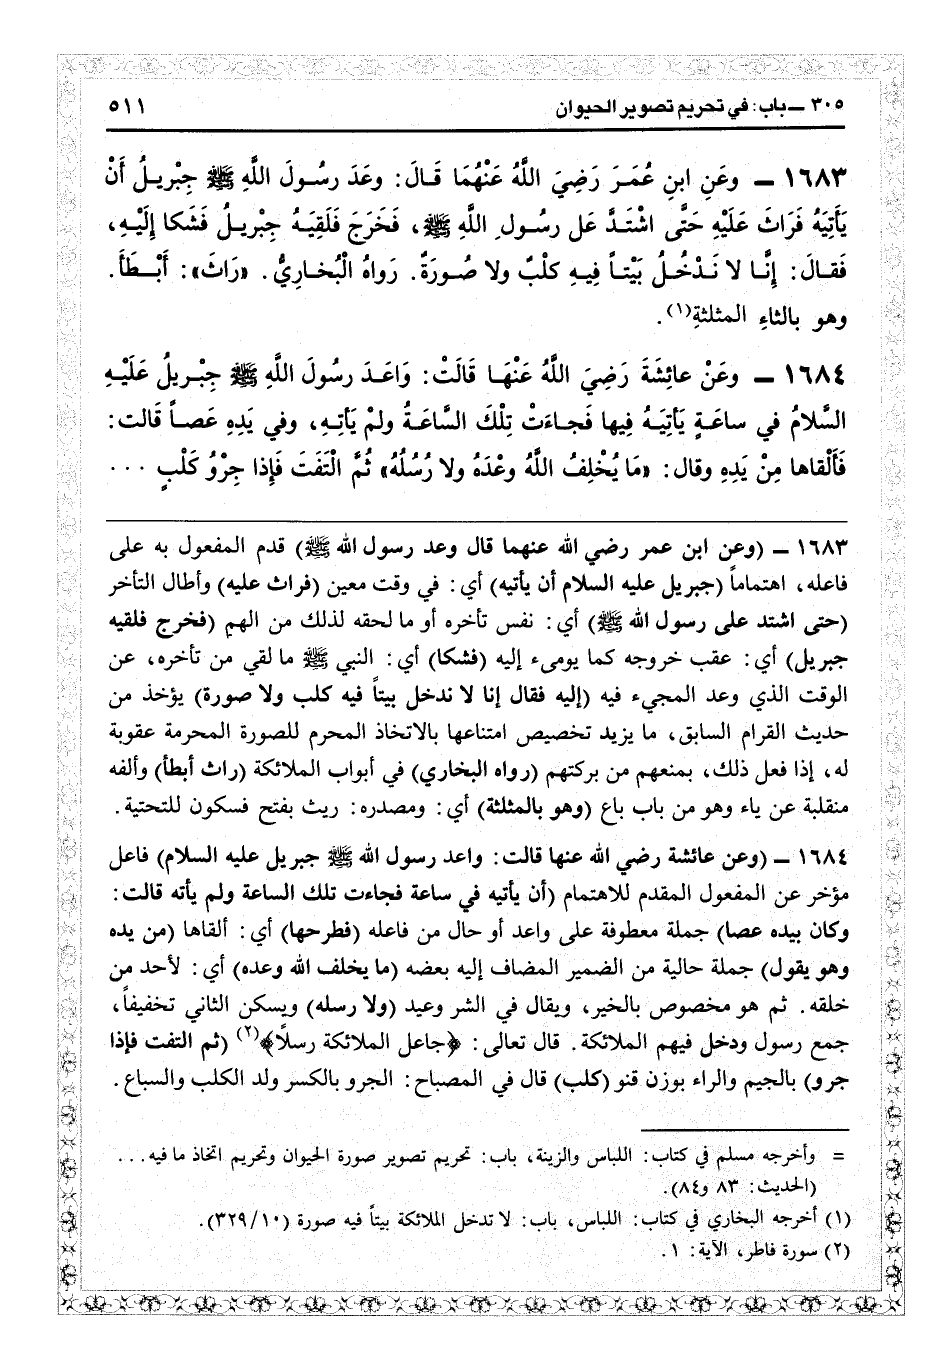 ٣٠٥ ـ باب: في تحريم تصوير الحيوان ٥١١
١٦٨٣ ـ وعَنِ ابنِ عُمَرَ رَضِيَ اللَّهُ عَنْهُمَا قَالَ: وعَدَ رسُولَ اللَّهِ ﷺ جِبْرِيلُ أَنْ
يَأْتِيَهُ فَرَاثَ عَلَيْهِ حَتَّى اشْتَدَّ عَل رسُولِ اللَّهِ ﷺ، فَخَرَجَ فَلَقِيَهُ جِبْرِيلُ فَشَكا إِلَيْهِ،
فَقالَ: إِنَّا لا نَدْخُلُ بَيْتاً فِيهِ كلْبٌ ولا صُورَةٌ. رَواهُ الْبُخارِيُّ. «رَاثَ»: أَبْطَأَ.
وهو بالثاءِ المثلثةِ(١).
١٦٨٤ ـ وعَنْ عائِشَةَ رَضِيَ اللَّهُ عَنْهَا قَالَتْ: وَاعَدَ رسُولَ اللَّهِ ﷺ جِبْرِيلُ عَلَيْهِ
السَّلامُ في ساعَةٍ يَأْتِيَهُ فِيها فَجاءَتْ تِلْكَ السَّاعَةُ ولَمْ يَأْتِهِ، وفي يَدِهِ عَصاً قَالت:
فَأَلْقاها مِنْ يَدِهِ وقال: «مَا يُخْلِفُ اللَّهُ وعْدَهُ ولا رُسُلُهُ» ثُمَّ الْتَفَتَ فَإِذا جِرْوُ كَلْبٍ ...
١٦٨٣ ـ (وعن ابن عمر رضي الله عنهما قال وعد رسول الله ﷺ) قدم المفعول به على
فاعله، اهتماماً (جبريل عليه السلام أن يأتيه) أي: في وقت معين (فراث عليه) وأطال التأخر
(حتى اشتد على رسول الله ﷺ) أي: نفس تأخره أو ما لحقه لذلك من الهم (فخرج فلقيه
جبريل) أي: عقب خروجه كما يومىء إليه (فشكا) أي: النبي ﷺ ما لقي من تأخره، عن
الوقت الذي وعد المجيء فيه (إليه فقال إنا لا ندخل بيتاً فيه كلب ولا صورة) يؤخذ من
حديث القرام السابق، ما يزيد تخصيص امتناعها بالاتخاذ المحرم للصورة المحرمة عقوبة
له، إذا فعل ذلك، بمنعهم من بركتهم (رواه البخاري) في أبواب الملائكة (راث أبطأ) وألفه
منقلبة عن ياء وهو من باب باع (وهو بالمثلثة) أي: ومصدره: ريث بفتح فسكون للتحتية.
١٦٨٤ ـ (وعن عائشة رضي الله عنها قالت: واعد رسول الله ﷺ جبريل عليه السلام) فاعل
مؤخر عن المفعول المقدم للاهتمام (أن يأتيه في ساعة فجاءت تلك الساعة ولم يأته قالت:
وكان بيده عصا) جملة معطوفة على واعد أو حال من فاعله (فطرحها) أي: ألقاها (من يده
وهو يقول) جملة حالية من الضمير المضاف إليه بعضه (ما يخلف الله وعده) أي: لأحد من
خلقه. ثم هو مخصوص بالخير، ويقال في الشر وعيد (ولا رسله) ويسكن الثاني تخفيفاً،
جمع رسول ودخل فيهم الملائكة. قال تعالى: ﴿جاعل الملائكة رسلاً﴾(٢) (ثم التفت فإذا
جرو) بالجيم والراء بوزن قنو (كلب) قال في المصباح: الجرو بالكسر ولد الكلب والسباع.
= وأخرجه مسلم في كتاب: اللباس والزينة، باب: تحريم تصوير صورة الحيوان وتحريم اتخاذ ما فيه...
(الحديث: ٨٣ و٨٤).
(١) أخرجه البخاري في كتاب: اللباس، باب: لا تدخل الملائكة بيتاً فيه صورة (٣٢٩/١٠).
(٢) سورة فاطر، الآية: ١.